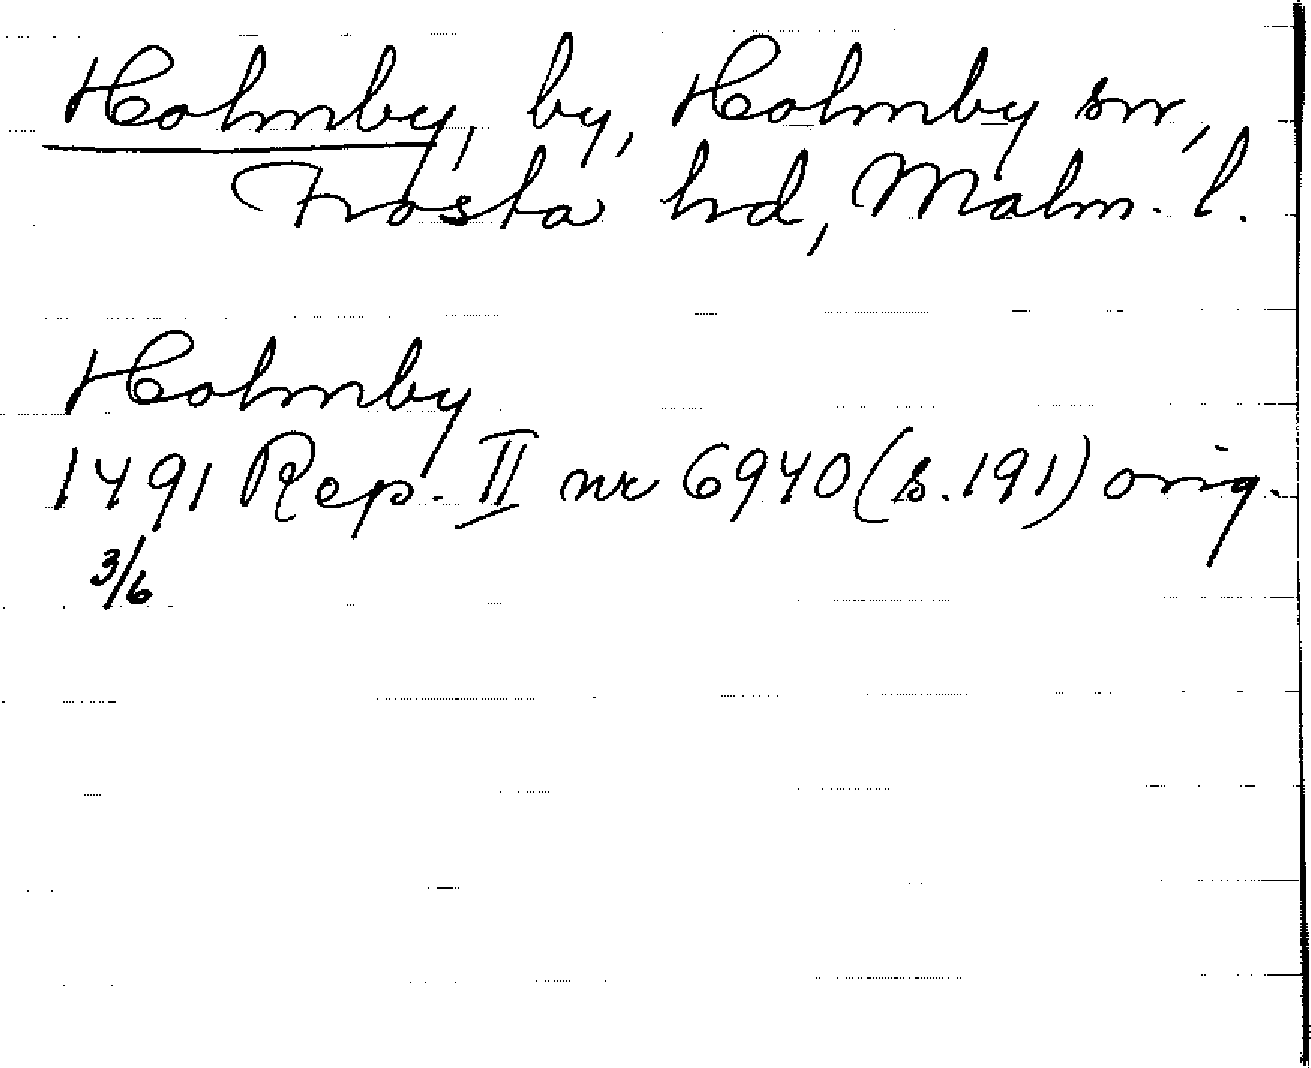 Holmby, by, Holmby sn,
Frosta hd, Malm. l.
Holmby
1491 Rep. II nr 6940 (s. 191) orig.
3/6